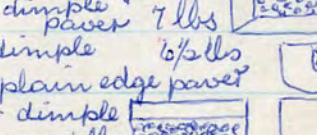 dimple
paver 7 lbs
dimple 6½ lbs
plain edge paver
- dimple